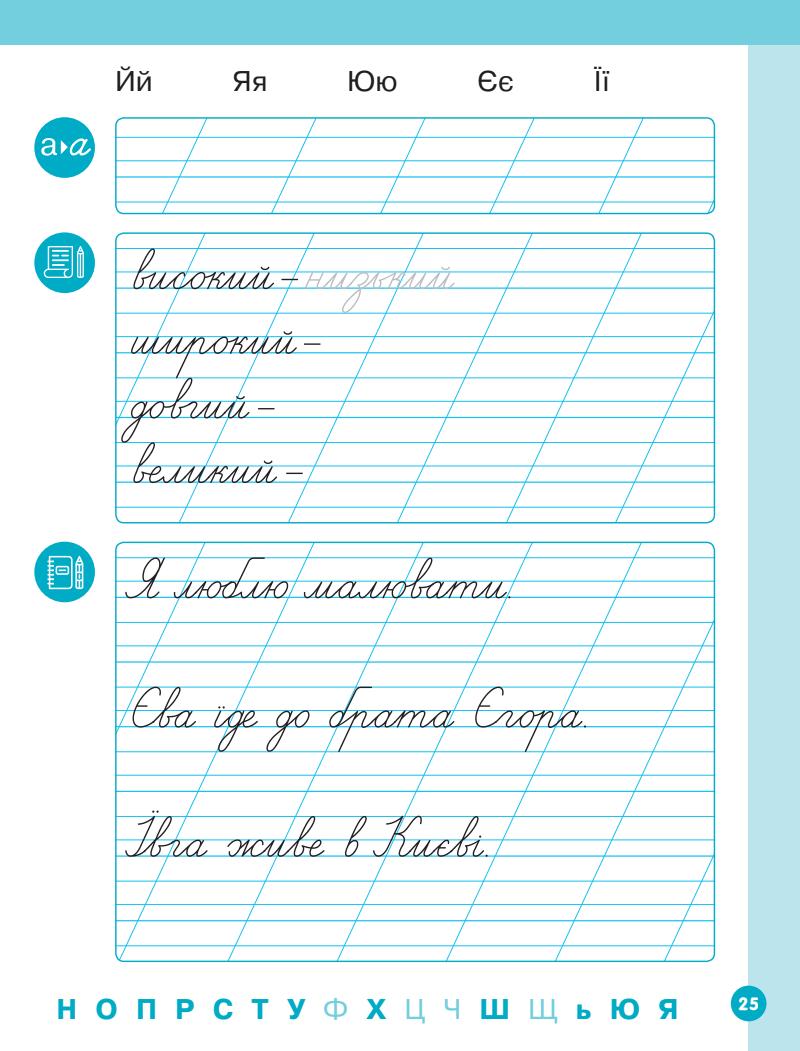 Йй Яя Юю Єє Її
а а
високий – низький
широкий –
довгий –
великий –
Я люблю малювати.
Єва їде до брата Єгора.
Ївга живе в Києві.
Н О П Р С Т У Ф Х Ц Ч Ш Щ ь Ю Я
25